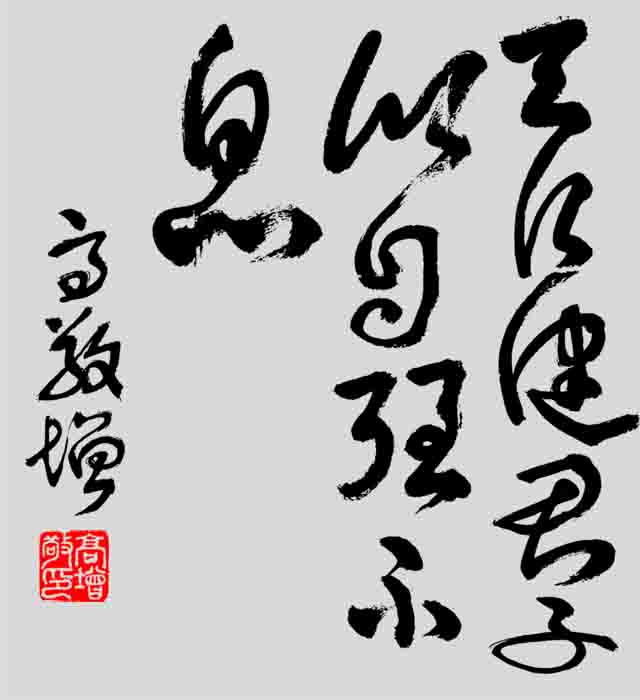 天行健君子
以自强不
息
高敬增
高增敬印